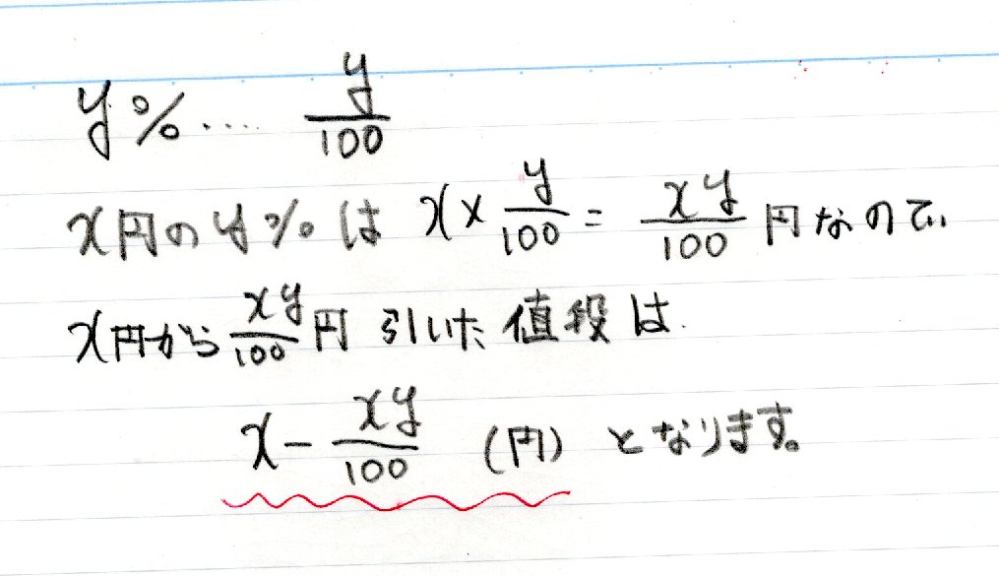 y%‥‥ y/100
x円のy%は x×y/100=xy/100円なので、
x円からxy/100円 引いた値段は
x-xy/100 (円) となります。